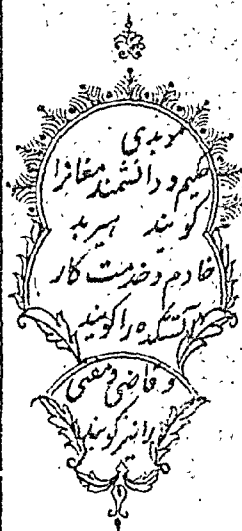 موبدی
حکیم و دانشمند مغانرا
گویند هیربد
خادم و خدمت کار
آتشکده را گویند
و قاضی و مفتی
را نیز گویند